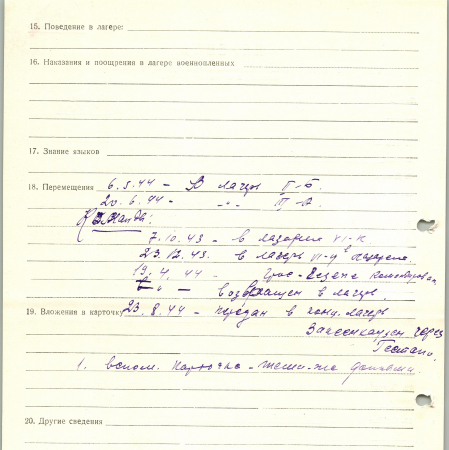 15. Поведение в лагере:
16. Наказания и поощрения в лагере военнопленных
17. Знание языков
18. Перемещения 6.5.44 – В лагерь II-Б.
20.6.44 – -"- II-А.
Команда:
7.10.43 – в лазарете VI-К.
23.12.43. в лагерь VI-
19.4.44 – Грос-
-"- – возвращен в лагерь.
19. Вложения в карточку 23.8.44 – передан в конц. лагерь
Заксенхаузен через
Гестапо.
1. вспом. карточка –
20. Другие сведения